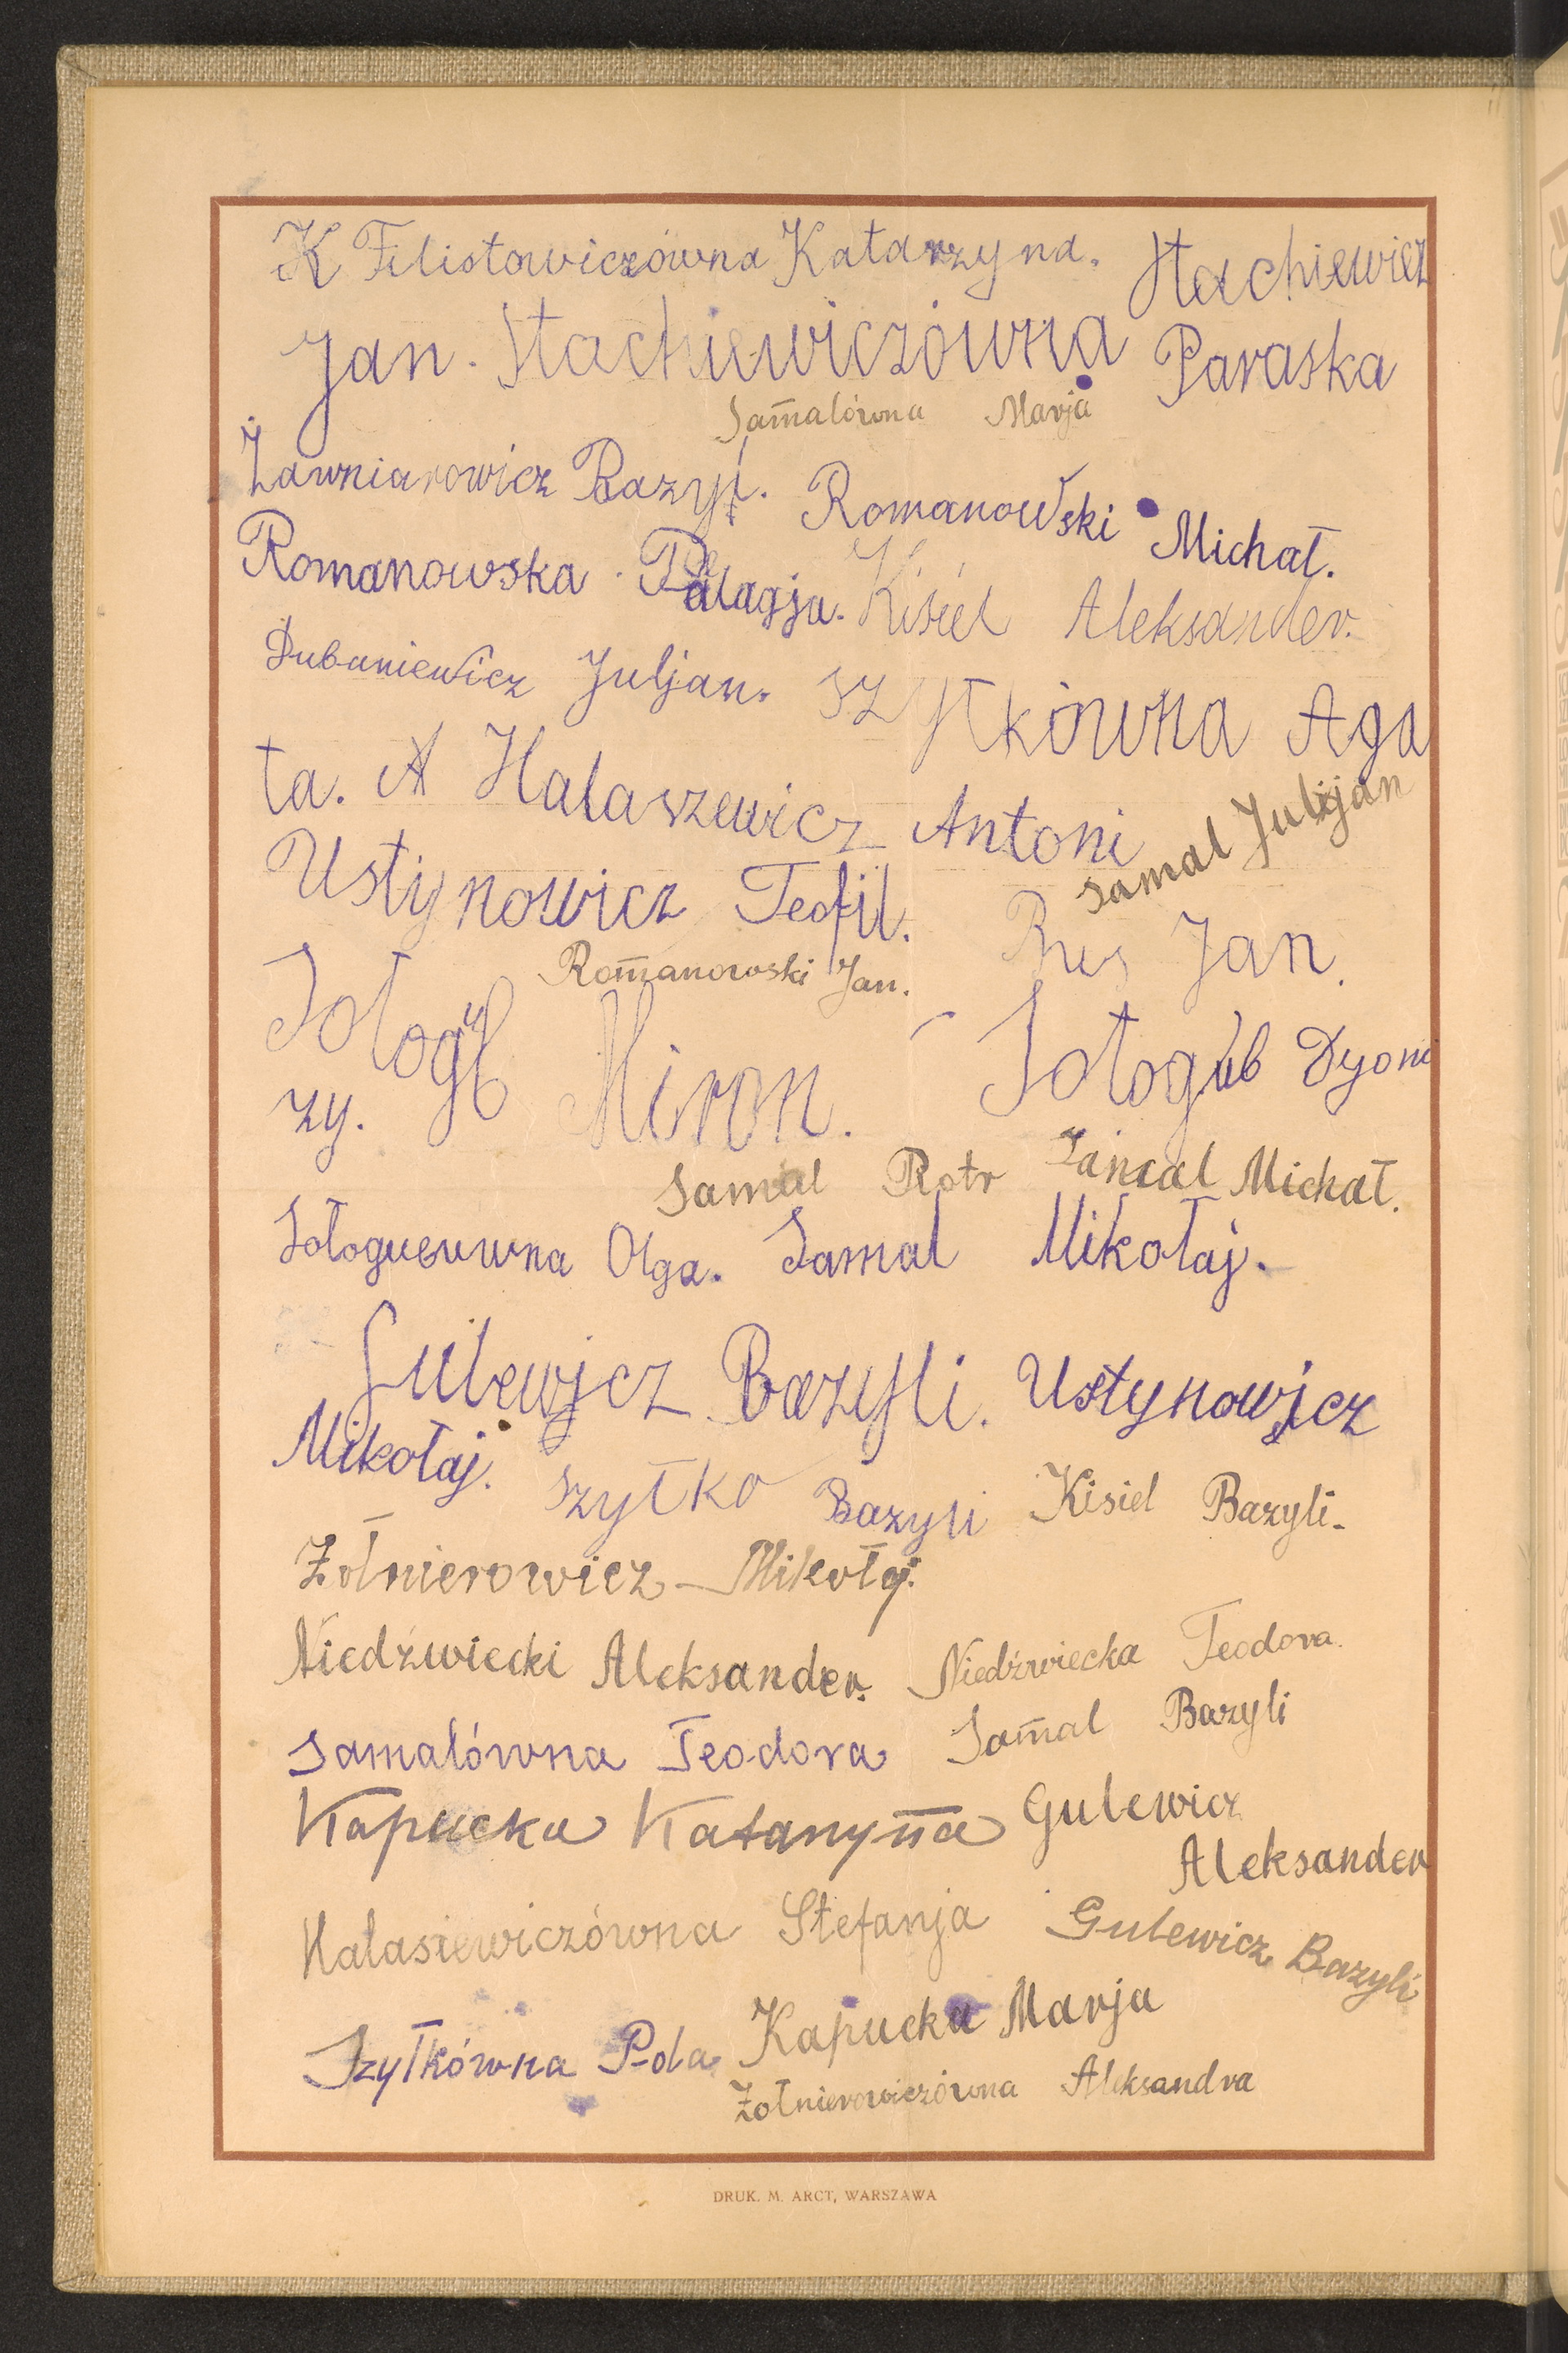 K Filistowiczówna Katarzyna. Stachiewicz
Jan. Stachiewiczówna Paraska
Samalówna Marja
Żawniarowicz Bazyl. Romanowski Michał.
Romanowska Palagja. Kisiel Aleksander.
Dubaniewicz Juljan. Szyłkówna Aga
ta. A Halaszewicz Antoni
Samal Julijan
Ustynowicz Teofil. Bus Jan.
Romanowski Jan.
Sołogub Miron. Sołogub Dyoni
zy.
Samal Piotr Michał.
Sołoguwuwna Olga. Samal Mikołaj.
Gulewicz Bazyli. Ustynowicz
Mikołaj. Szyłko Bazyli Kisiel Bazyli.
Żołnierowicz Mikołaj.
Niedźwiecki Aleksander. Niedźwiecka Teodora.
Samalówna Teodora Samal Bazyli
Kapucka Katarzyna Gulewicz
Aleksander
Halasiewiczówna Stefanja Gulewicz Bazyli
Szyłkówna P-ola Kapucka Marja
Żołnierowiczówna Aleksandra
DRUK. M. ARCT, WARSZAWA